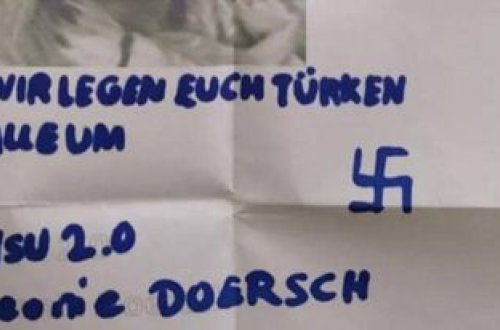 WIR LEGEN EUCH TÜRKEN
ALLE UM
NSU 2.0
eonie DOERSCH